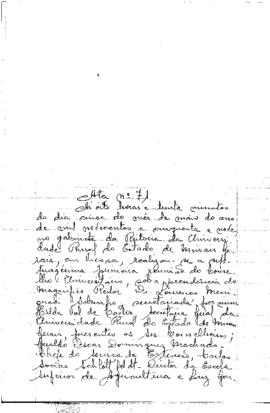 Ata nº 71
Às oito horas e trinta minutos
do dia cinco do mês de maio do ano
de mil novecentos e cinquenta e nove
no gabinete da Reitoria da Univer
dade Rural do Estado de Minas Ge
rais, em Viçosa, realizou-se a sep
tuagésima primeira reunião do Conse
lho Universitário, sob a presidência do
Magnífico Reitor Dr. Lourenço Meni
cucci Sobrinho, secretariada por mim
Hilda Val de Castro, Secretária Geral da
Universidade Rural do Estado de Minas
Gerais, presentes os srs. Conselheiros:
Geraldo Oscar Domingues Machado,
Chefe do Serviço de Extensão, Carlos
Socias Schlottfeldt, Diretor da Escola
Superior de Agricultura e